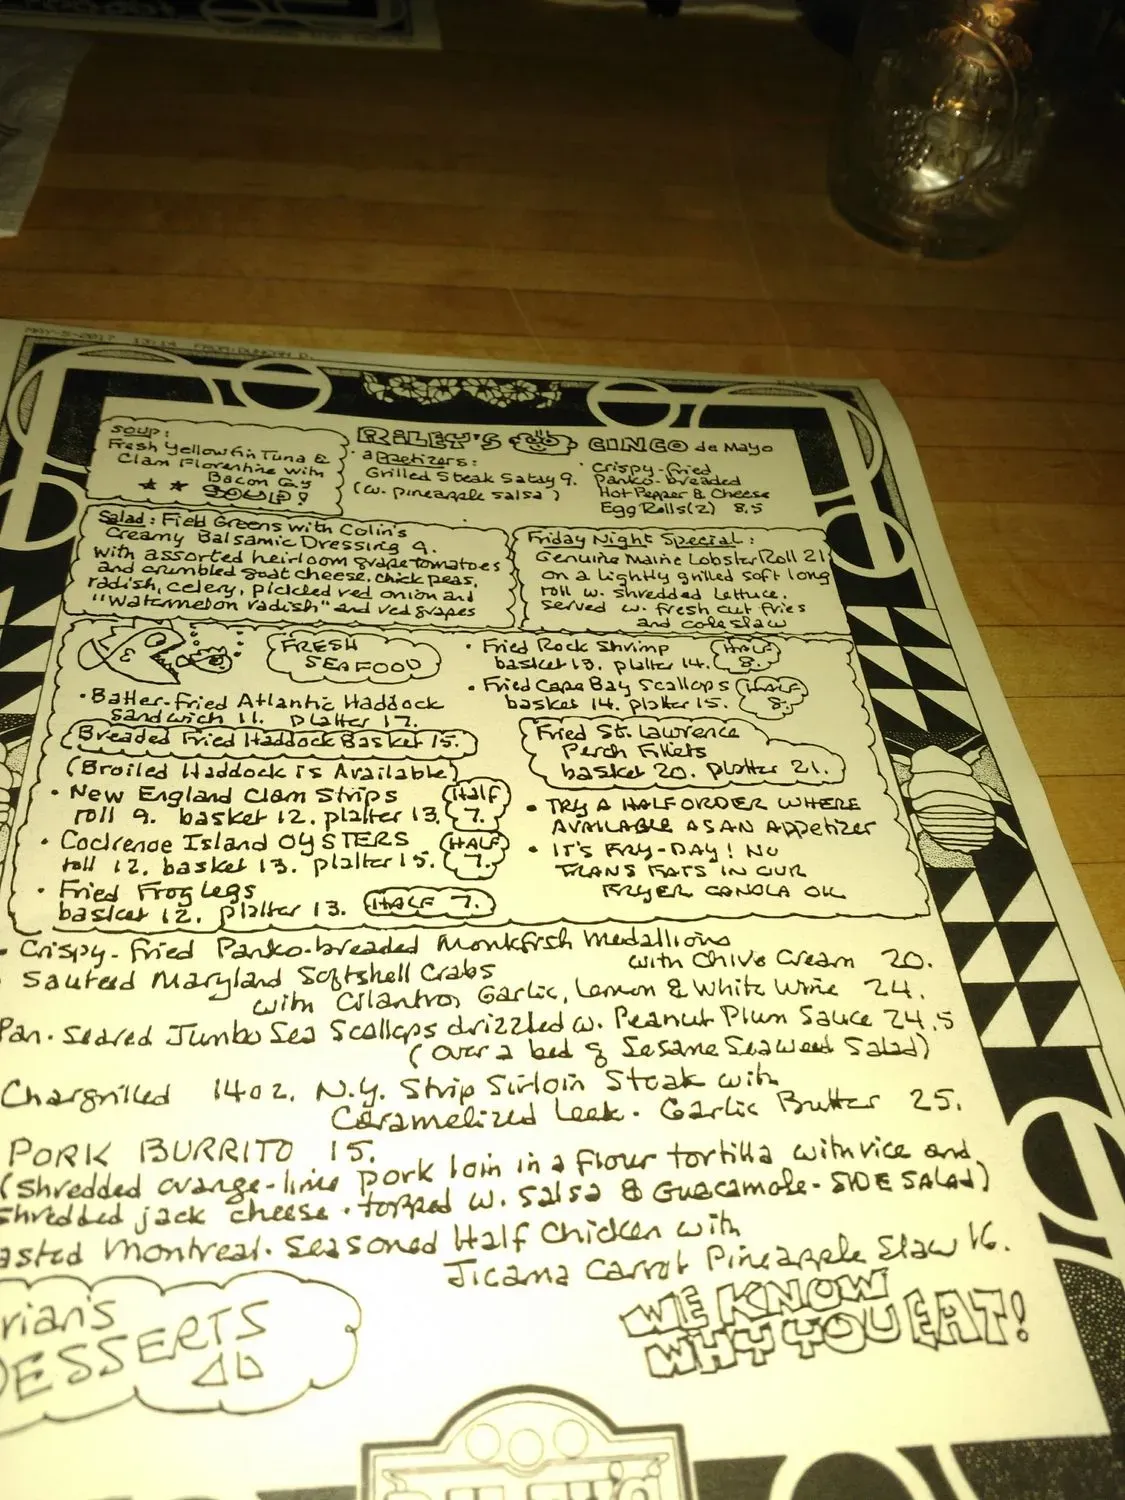 MAY-5-2017 13:14 FROM:DUNCAN D.
SOUP:
Fresh Yellowfin Tuna &
Clam Florentine with
Bacon
SOUP!
RILEY'S CINCO de Mayo
appetizers:
Grilled Steak Satay 9.
(w. pineapple salsa)
Crispy-fried
panko-breaded
Hot Pepper & Cheese
Egg Rolls (2) 8.5
Salad: Field Greens with Colin's
Creamy Balsamic Dressing 9.
with assorted heirloom grape tomatoes
and crumbled goat cheese, chick peas,
radish, celery, pickled red onion and
"watermelon radish" and red grapes
Friday Night Special:
Genuine Maine Lobster Roll 21
on a lightly grilled soft long
roll w. shredded lettuce.
served w. fresh cut fries
and coleslaw
FRESH
SEAFOOD
• Batter-Fried Atlantic Haddock
sandwich 11. platter 17.
Breaded Fried Haddock Basket 15.
(Broiled Haddock is Available)
• New England Clam Strips
roll 9. basket 12. platter 13. Half 7.
• Cockrenoe Island OYSTERS
roll 12. basket 13. platter 15. HALF 7.
• Fried Frog legs
basket 12. platter 13. HALF 7.
• Fried Rock Shrimp
basket 13. platter 14. HALF 8.
• Fried Cape Bay Scallops
basket 14. platter 15. HALF 8.
Fried St. Lawrence
Perch Fillets
basket 20. platter 21.
• TRY A HALF ORDER WHERE
AVAILABLE AS AN APPetizER
• IT'S FRY-DAY! NO
TRANS FATS IN OUR
FRYER CANOLA OIL
• Crispy-Fried Panko-breaded Monkfish Medallions
with Chive Cream 20.
Sauteed Maryland Softshell Crabs
with Cilantro, Garlic, Lemon & White Wine 24.
Pan-Seared Jumbo Sea Scallops drizzled w. Peanut Plum Sauce 24.5
(over a bed of Sesame Seaweed Salad)
Chargrilled 14oz. N.Y. Strip Sirloin Steak with
Caramelized Leek-Garlic Butter 25.
PORK BURRITO 15.
(Shredded orange-lime pork loin in a flour tortilla with rice and
shredded jack cheese • topped w. salsa & Guacamole - SIDE SALAD)
asted Montreal-Seasoned Half Chicken with
Jicama Carrot Pineapple Slaw 16.
rian's
DESSERTS
WE KNOW
WHY YOU EAT!
RILEY'S